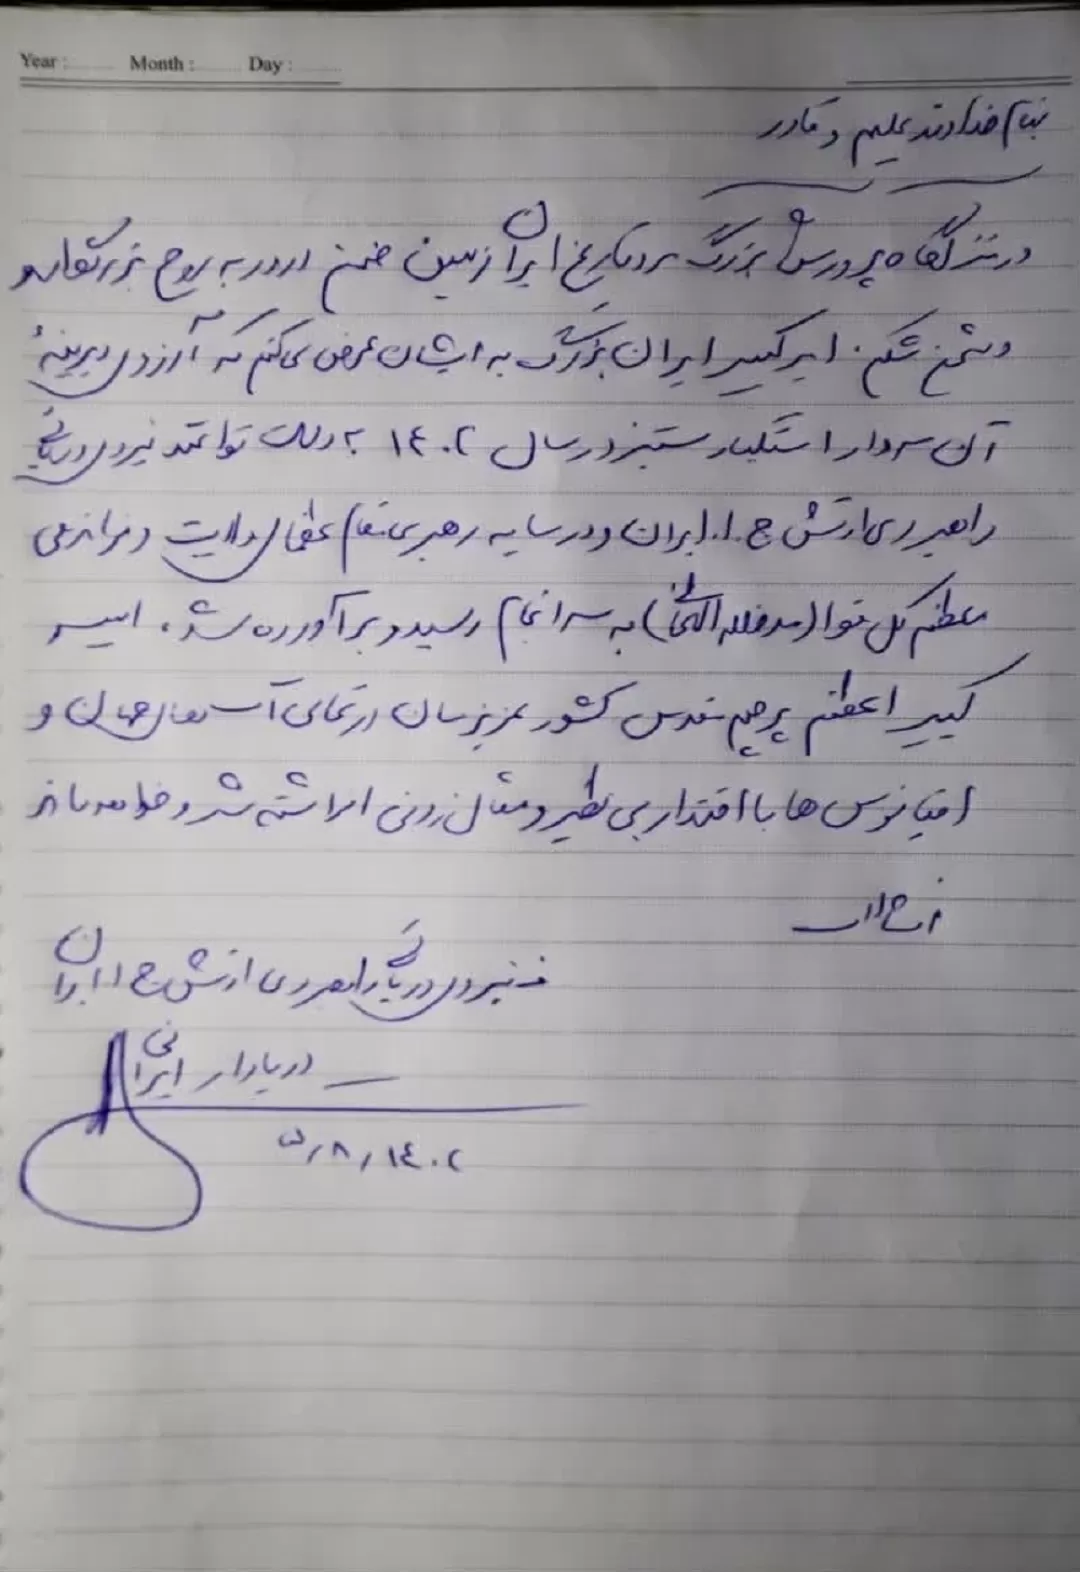 Year : Month : Day :
بنام خداوند علیم و قادر
در منزلگاه پرورش بزرگ مرد تاریخ ایران زمین ضمن درود به روح بزرگوار و
دشمن شکن امیرکبیر ایران بزرگ به ایشان عرض می کنم که آرزوی دیرینهٔ
آن سردار استکبار ستیز در سال ۱۴۰۲ به دست توانمند نیروی دریایی
راهبردی ارتش ج.ا.ایران و در سایه رهبری مقام عظمای ولایت و فرماندهی
معظم کل قوا (مدظله العالی) به سرانجام رسید و برآورده شد. امیر
کبیر اعظم پرچم مقدس کشور عزیزمان در تمامی آبهای جهان و
اقیانوس ها با اقتدار بی نظیر و مثال زدنی افراشته شد و خواهد ماند
ف نیروی دریایی راهبردی ارتش ج ا ایران
دریادار ایرانی
۱۴۰۲/۸/۵